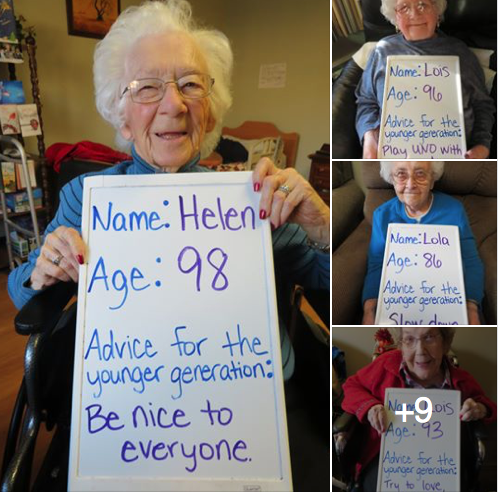 Name: Helen
Age: 98
Advice for the
younger generation:
Be nice to
everyone.
Name: Lois
Age: 96
Advice for the
younger generation:
Play UNO with
Name: Lola
Age: 86
Advice for the
younger generation:
Slow down
+9
Name: Lois
Age: 93
Advice for the
younger generation:
Try to love,